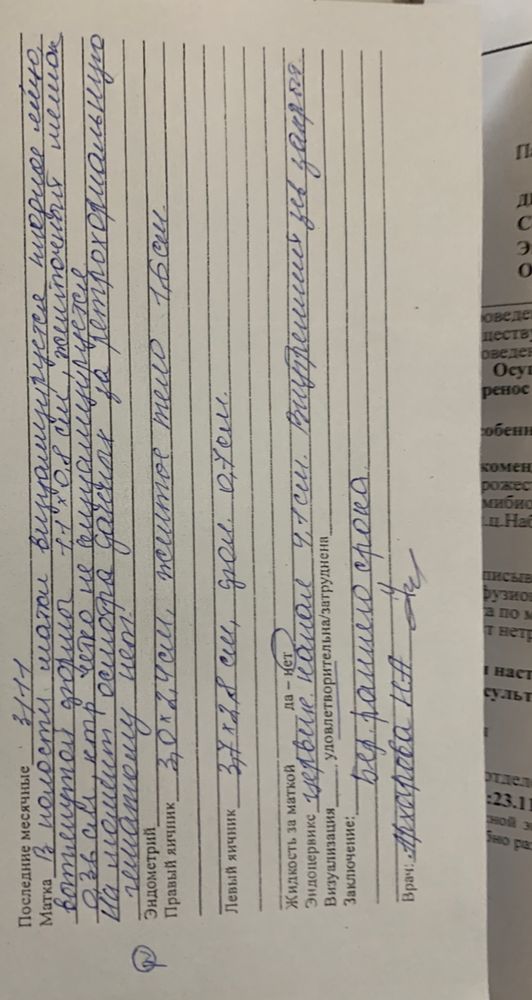 Последние месячные 3/11
Матка В полости матки визуализируется плодное яйцо
вытянутой формы 1,1 x 0,8 см, желточный мешок
0,36 см, ктр четко не визуализируется
На момент осмотра данных за ретрохориальную
гематому нет.
Эндометрий
Правый яичник 3,0 x 2,4 см, желтое тело 1,6 см.
Левый яичник 3,7 x 2,8 см, фол. 0,7 см.
Жидкость за маткой да – нет
Эндоцервикс цервик. канал 4,1 см. Внутренний зев закрыт.
Визуализация удовлетворительна/затруднена
Заключение: Бер. раннего срока.
Врач:
Па
С
Э
О
оведен
ществу
оведен
Осу
ренос
собенн
комен
рожес
мибио
ц.Наб
писыв
фузио
а по м
т нетр
наст
сульт
отдел
:23.11
ной э
бно ра